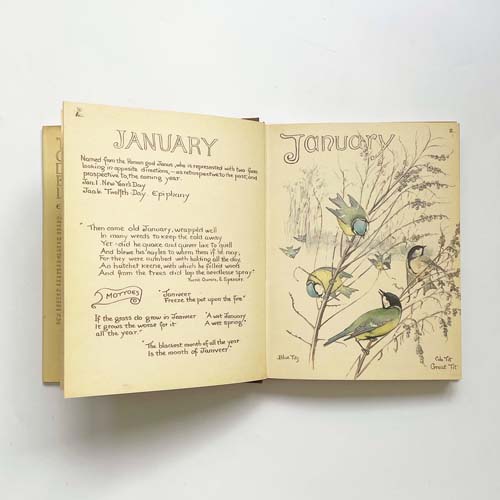 JANUARY
Named from the Roman god Janus, who is represented with two faces
looking in opposite directions, — as retrospective to the past, and
prospective to the coming year.
Jan. 1. New Year's Day
Jan. 6. Twelfth Day Epiphany
"Then came old January, wrapped well
In many weeds to keep the cold away
Yet did he quake and quiver like to quell
And blowe his nayles to warm them if he may;
For they were numbed with holding all the day
An hatchet keene, with which he felled wood
And from the trees did lop the needlesse spray"
E. Spenser
MOTTOES
"Janveer
Freeze the pot upon the fire"
If the grass do grow in Janveer
It grows the worse for it
all the year."
"A wet January
A wet Spring"
"The blackest month of all the year
Is the month of Janiveer"
January
2.
Blue Tits
Cole Tit
Great Tit